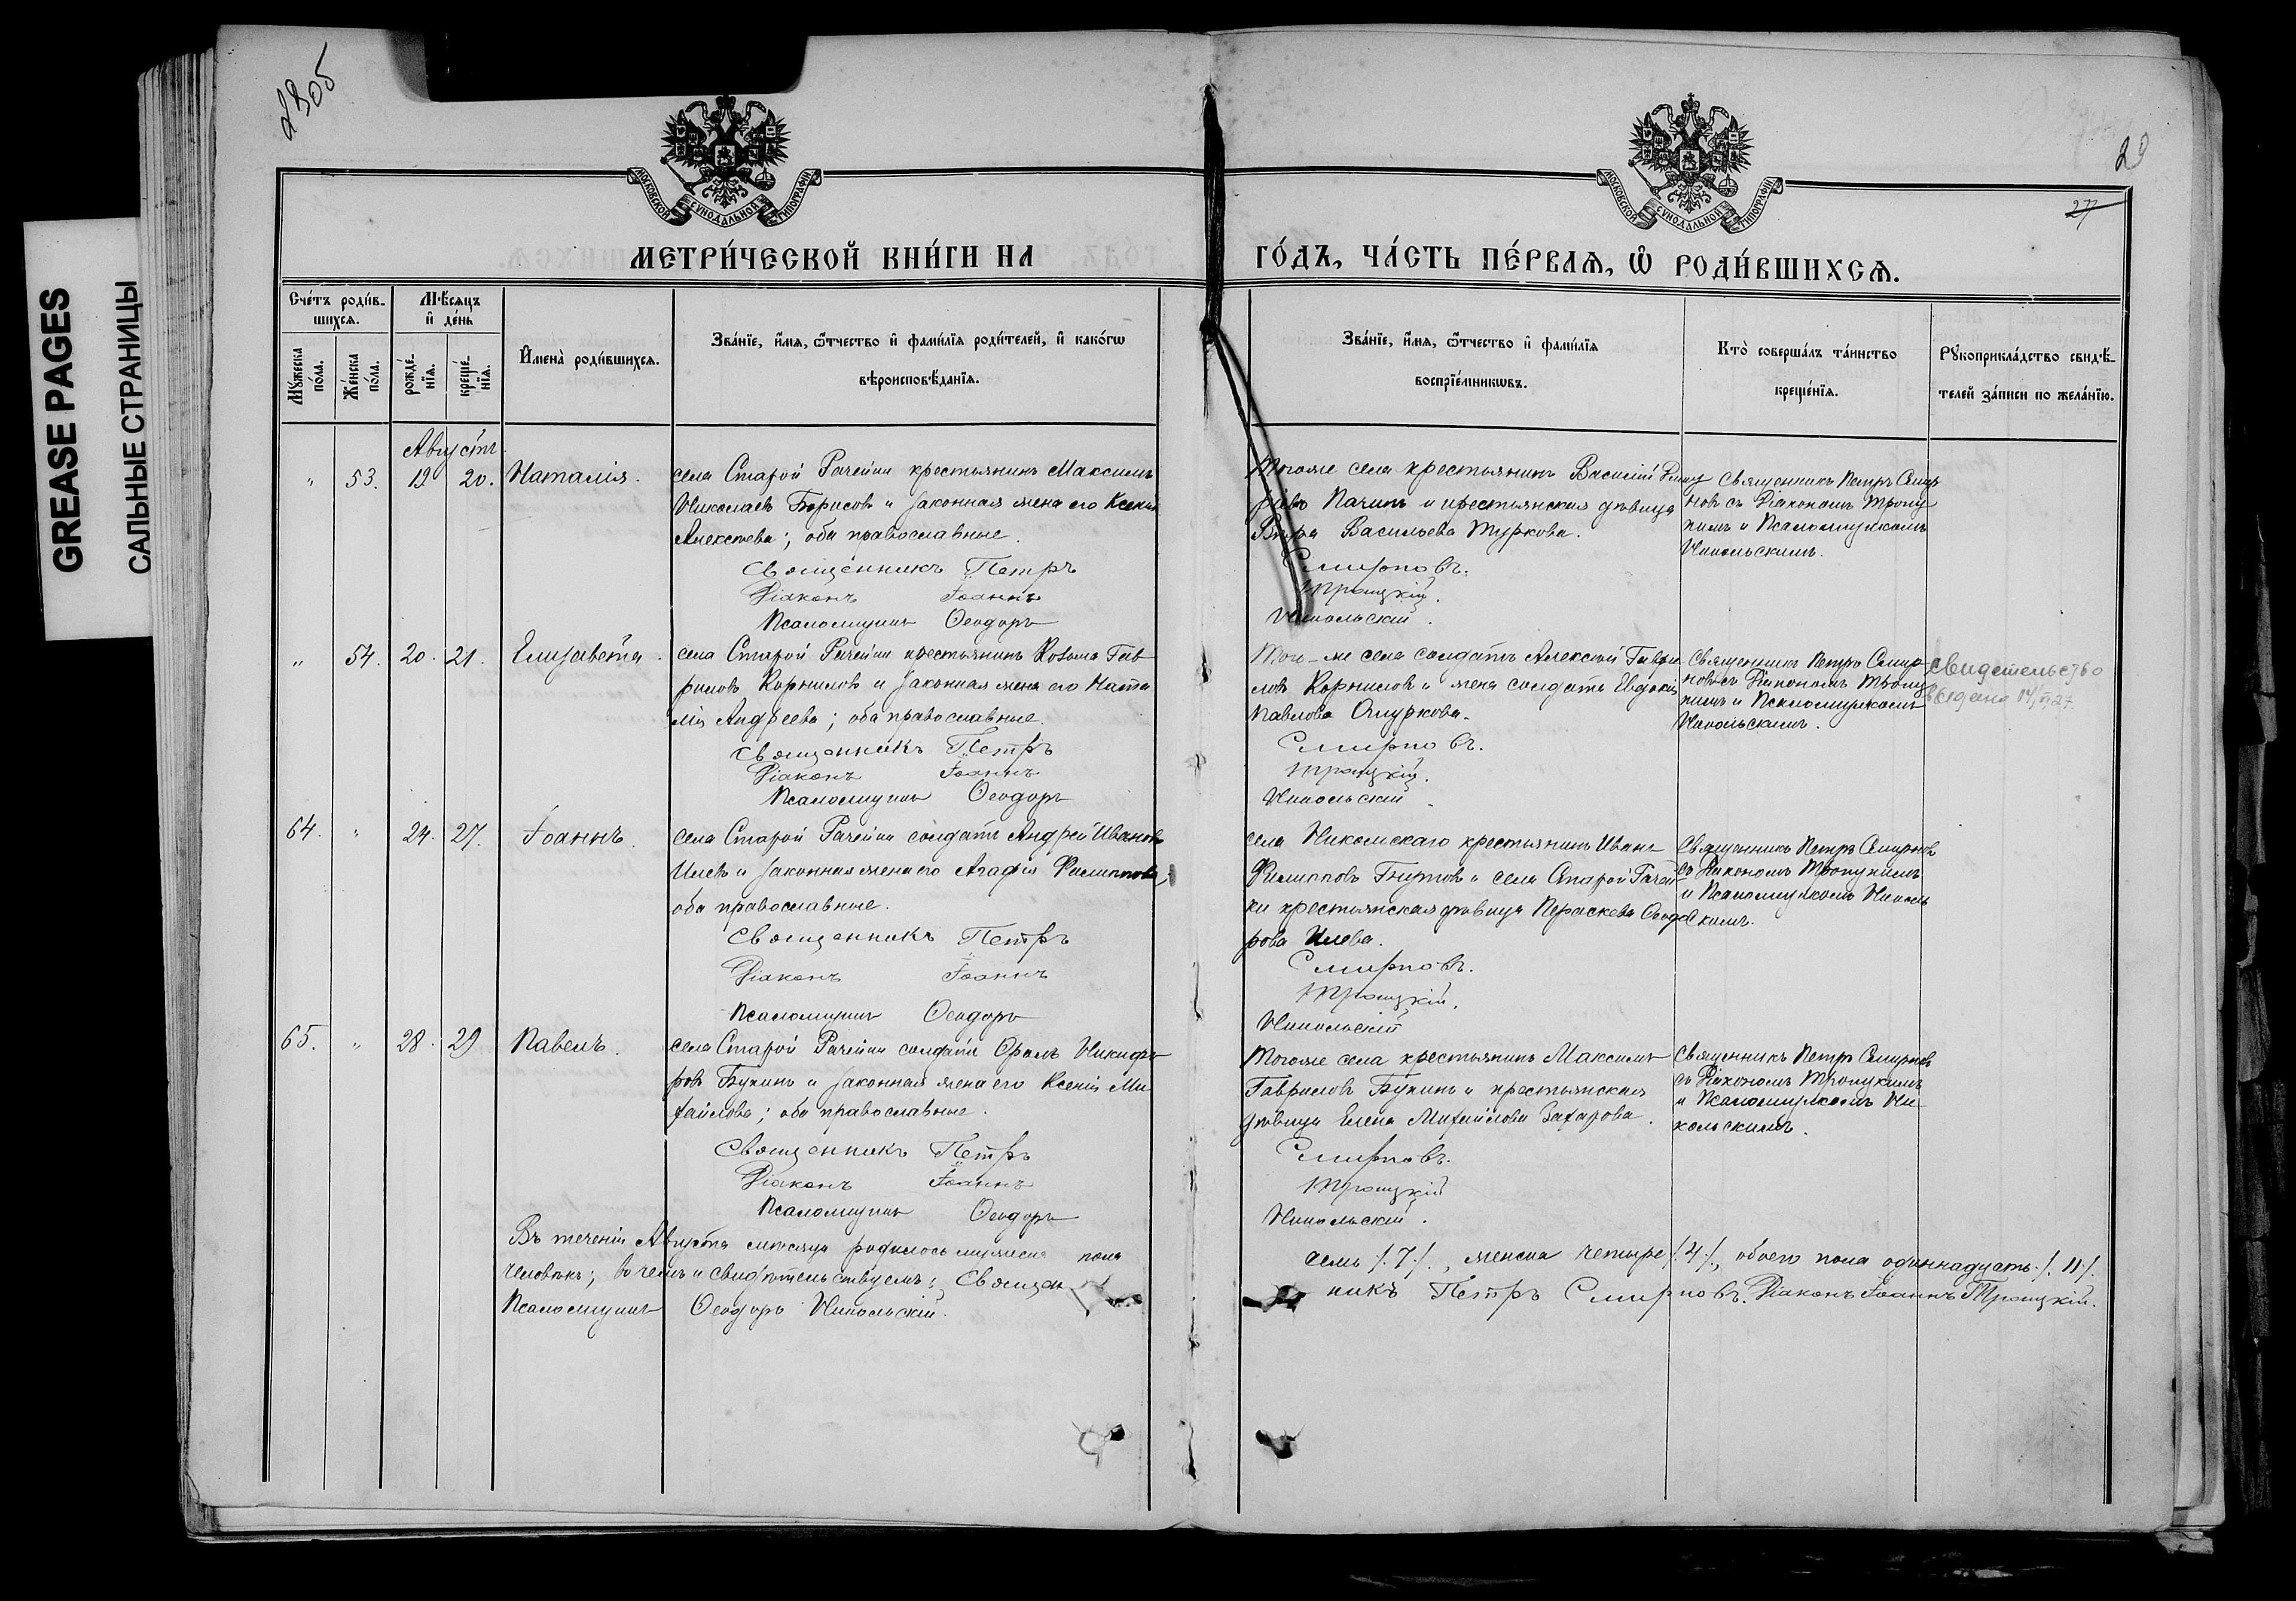 28об
29
27
GREASE PAGES
САЛЬНЫЕ СТРАНИЦЫ
МОСКОВСКОЙ СѴНОДАЛЬНОЙ ТИПОГРАФІИ
МОСКОВСКОЙ СѴНОДАЛЬНОЙ ТИПОГРАФІИ
МЕТРИ́ЧЕСКОЙ КНИ́ГИ НА
ГО́ДЪ, ЧА́СТЬ ПЕ́РВАѦ, Ѡ҆ РОДИ́ВШИХСѦ.
Сче́тъ роди́в-
шихсѧ.
Мѣ́сѧцъ
и҆ де́нь
Мꙋ́жеска
по́ла.
Же́нска
по́ла.
рожде́-
нїѧ.
креще́-
нїѧ.
И҆мена̀ роди́вшихсѧ.
Зва́нїе, и҆́мѧ, ѻ҆́тчество и҆ фами́лїѧ роди́телей, и҆ како́гѡ
вѣроисповѣ́данїѧ.
Зва́нїе, и҆́мѧ, ѻ҆́тчество и҆ фами́лїѧ
воспрїе́мникѡвъ.
Кто̀ соверша́лъ та́инство
креще́нїѧ.
Рꙋкоприкла́дство свидѣ́-
телей за́писи по жела́нїю.
Августъ.
" 53. 19 20. Наталія.
села Старой Рачейки крестьянинъ Максимъ
Николаевъ Борисовъ и законная жена его Ксенія
Алексѣева; оба православные.
Священникъ Петръ
Діаконъ Іоаннъ
Псаломщикъ Ѳеодоръ
Тогоже села крестьянинъ Василій
Пачинъ и крестьянская дѣвица
Вѣра Васильева Туркова.
Смирновъ.
Троицкій.
Никольскій.
Священникъ Петръ Смир
новъ съ Діакономъ Троиц
кимъ и Псаломщикомъ
Никольскимъ.
" 54. 20. 21. Елизавета.
села Старой Рачейки крестьянинъ Козьма Гав
риловъ Корниловъ и законная жена его Ната
лія Андреева; оба православные.
Священникъ Петръ
Діаконъ Іоаннъ
Псаломщикъ Ѳеодоръ
Того-же села солдатъ Алексѣй Гаври
ловъ Корниловъ и жена солдата Евдокія
Павлова Ошуркова.
Смирновъ.
Троицкій.
Никольскій.
Священникъ Петръ Смир
новъ съ Діакономъ Троиц
кимъ и Псаломщикомъ
Никольскимъ.
свидетельство
выдано 14/
64. " 24. 27. Іоаннъ.
села Старой Рачейки солдатъ Андрей Ивановъ
Илевъ и законная жена его Агафія Филиппова,
оба православные.
Священникъ Петръ
Діаконъ Іоаннъ
Псаломщикъ Ѳеодоръ
села Никольскаго крестьянинъ Иванъ
Филипповъ и села Старой Рачей
ки крестьянская дѣвица Параскева Ѳеодо
рова Илева.
Смирновъ.
Троицкій.
Никольскій
Священникъ Петръ Смирновъ
съ Діакономъ Троицкимъ
и Псаломщикомъ Николь
скимъ.
65. " 28. 29 Павелъ.
села Старой Рачейки солдатъ Фролъ Никифо
ровъ Букинъ и законная жена его Ксенія Ми
хайлова; оба православные.
Священникъ Петръ
Діаконъ Іоаннъ
Псаломщикъ Ѳеодоръ
Тогоже села крестьянинъ Максимъ
Гавриловъ Букинъ и крестьянская
дѣвица Елена Михайлова Захарова.
Смирновъ.
Троицкій
Никольскій.
Священникъ Петръ Смирновъ
съ Діакономъ Троицкимъ
и Псаломщикомъ Ни
кольскимъ.
Въ теченіи Августа мѣсяца родилось мужеска пола семь /.7/., женска четыре /.4./, обоего пола одиннадцать /.11/.
человѣкъ; въ чемъ и свидѣтельствуемъ: Священникъ Петръ Смирновъ. Діаконъ Іоаннъ Троицкій.
Псаломщикъ Ѳеодоръ Никольскій.